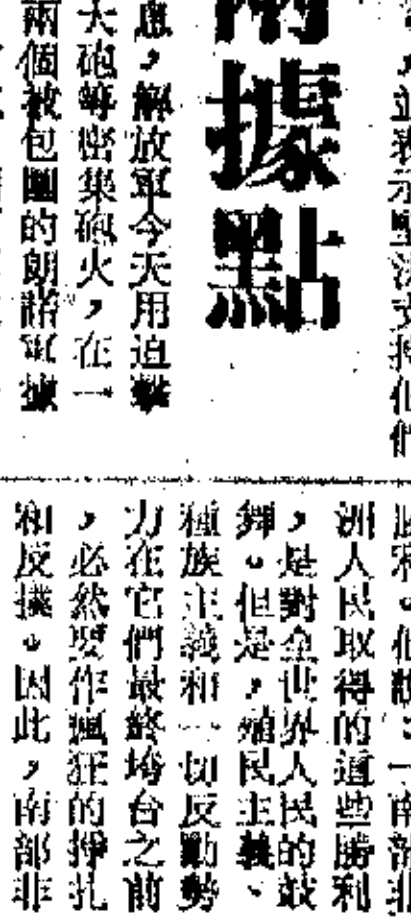 ，並表示堅決支持他們
據點
息，解放軍今天用迫擊
大砲等密集砲火，在一
兩個被包圍的朗諾軍據
勝利。他說：「南部非
洲人民取得的這些勝利
，是對全世界人民的鼓
舞。但是，殖民主義、
種族主義和一切反動勢
力在它們最終垮台之前
，必然要作瘋狂的掙扎
和反撲。因此，南部非